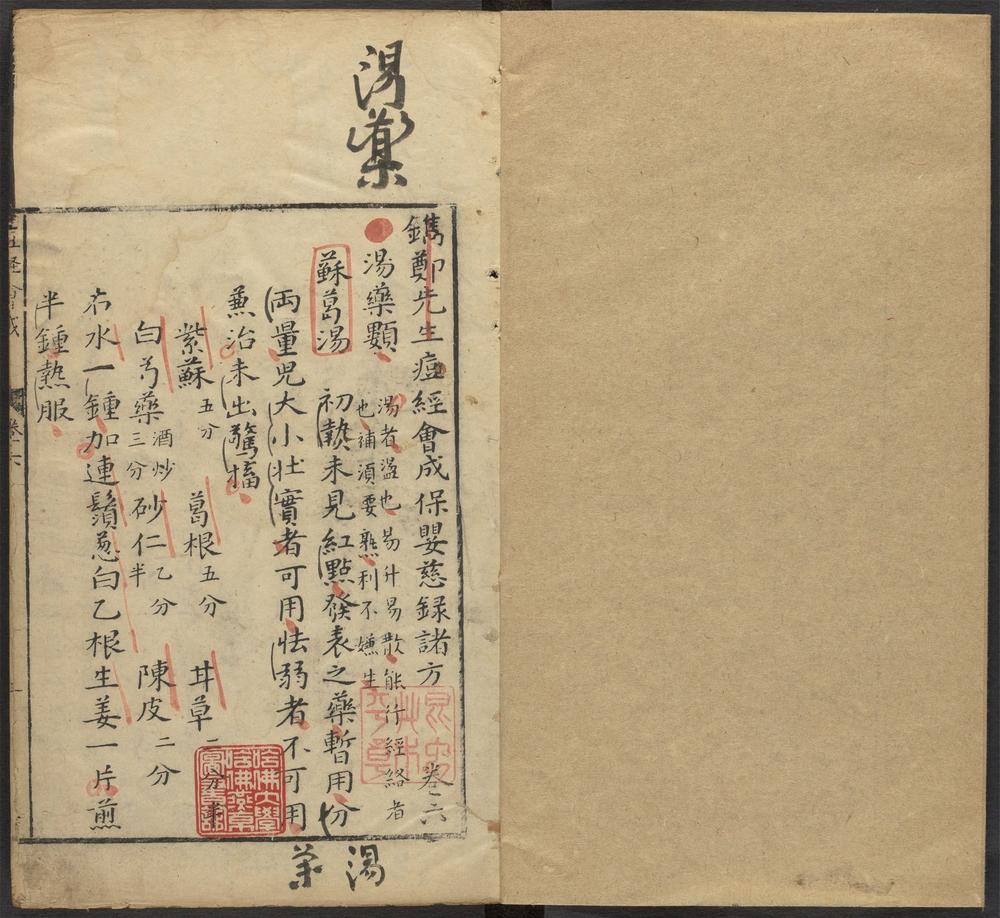 湯藥
鐫鄭先生痘經會成保嬰慈錄諸方 卷六
湯藥類
湯者溫也易升易散能行經絡者
也補須要熟利不嫌生
蘇葛湯
初熱未見紅點發表之藥暫用分
兩量兒大小壯實者可用怯弱者不可用
兼治未出驚搐
紫蘇五分 葛根五分 甘草二分半
白芍藥酒炒三分 砂仁乙分半 陳皮二分
右水一鍾加連鬚葱白乙根生姜一片煎
半鍾熱服
卷六
湯
藥
哈佛大學
哈佛燕京
圖書館